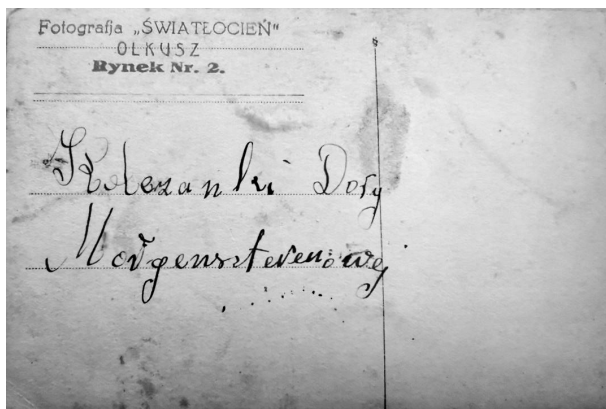 Fotografja „ŚWIATŁOCIEŃ"
OLKUSZ
Rynek Nr. 2.
Koleżanki Dory
Morgensternowej